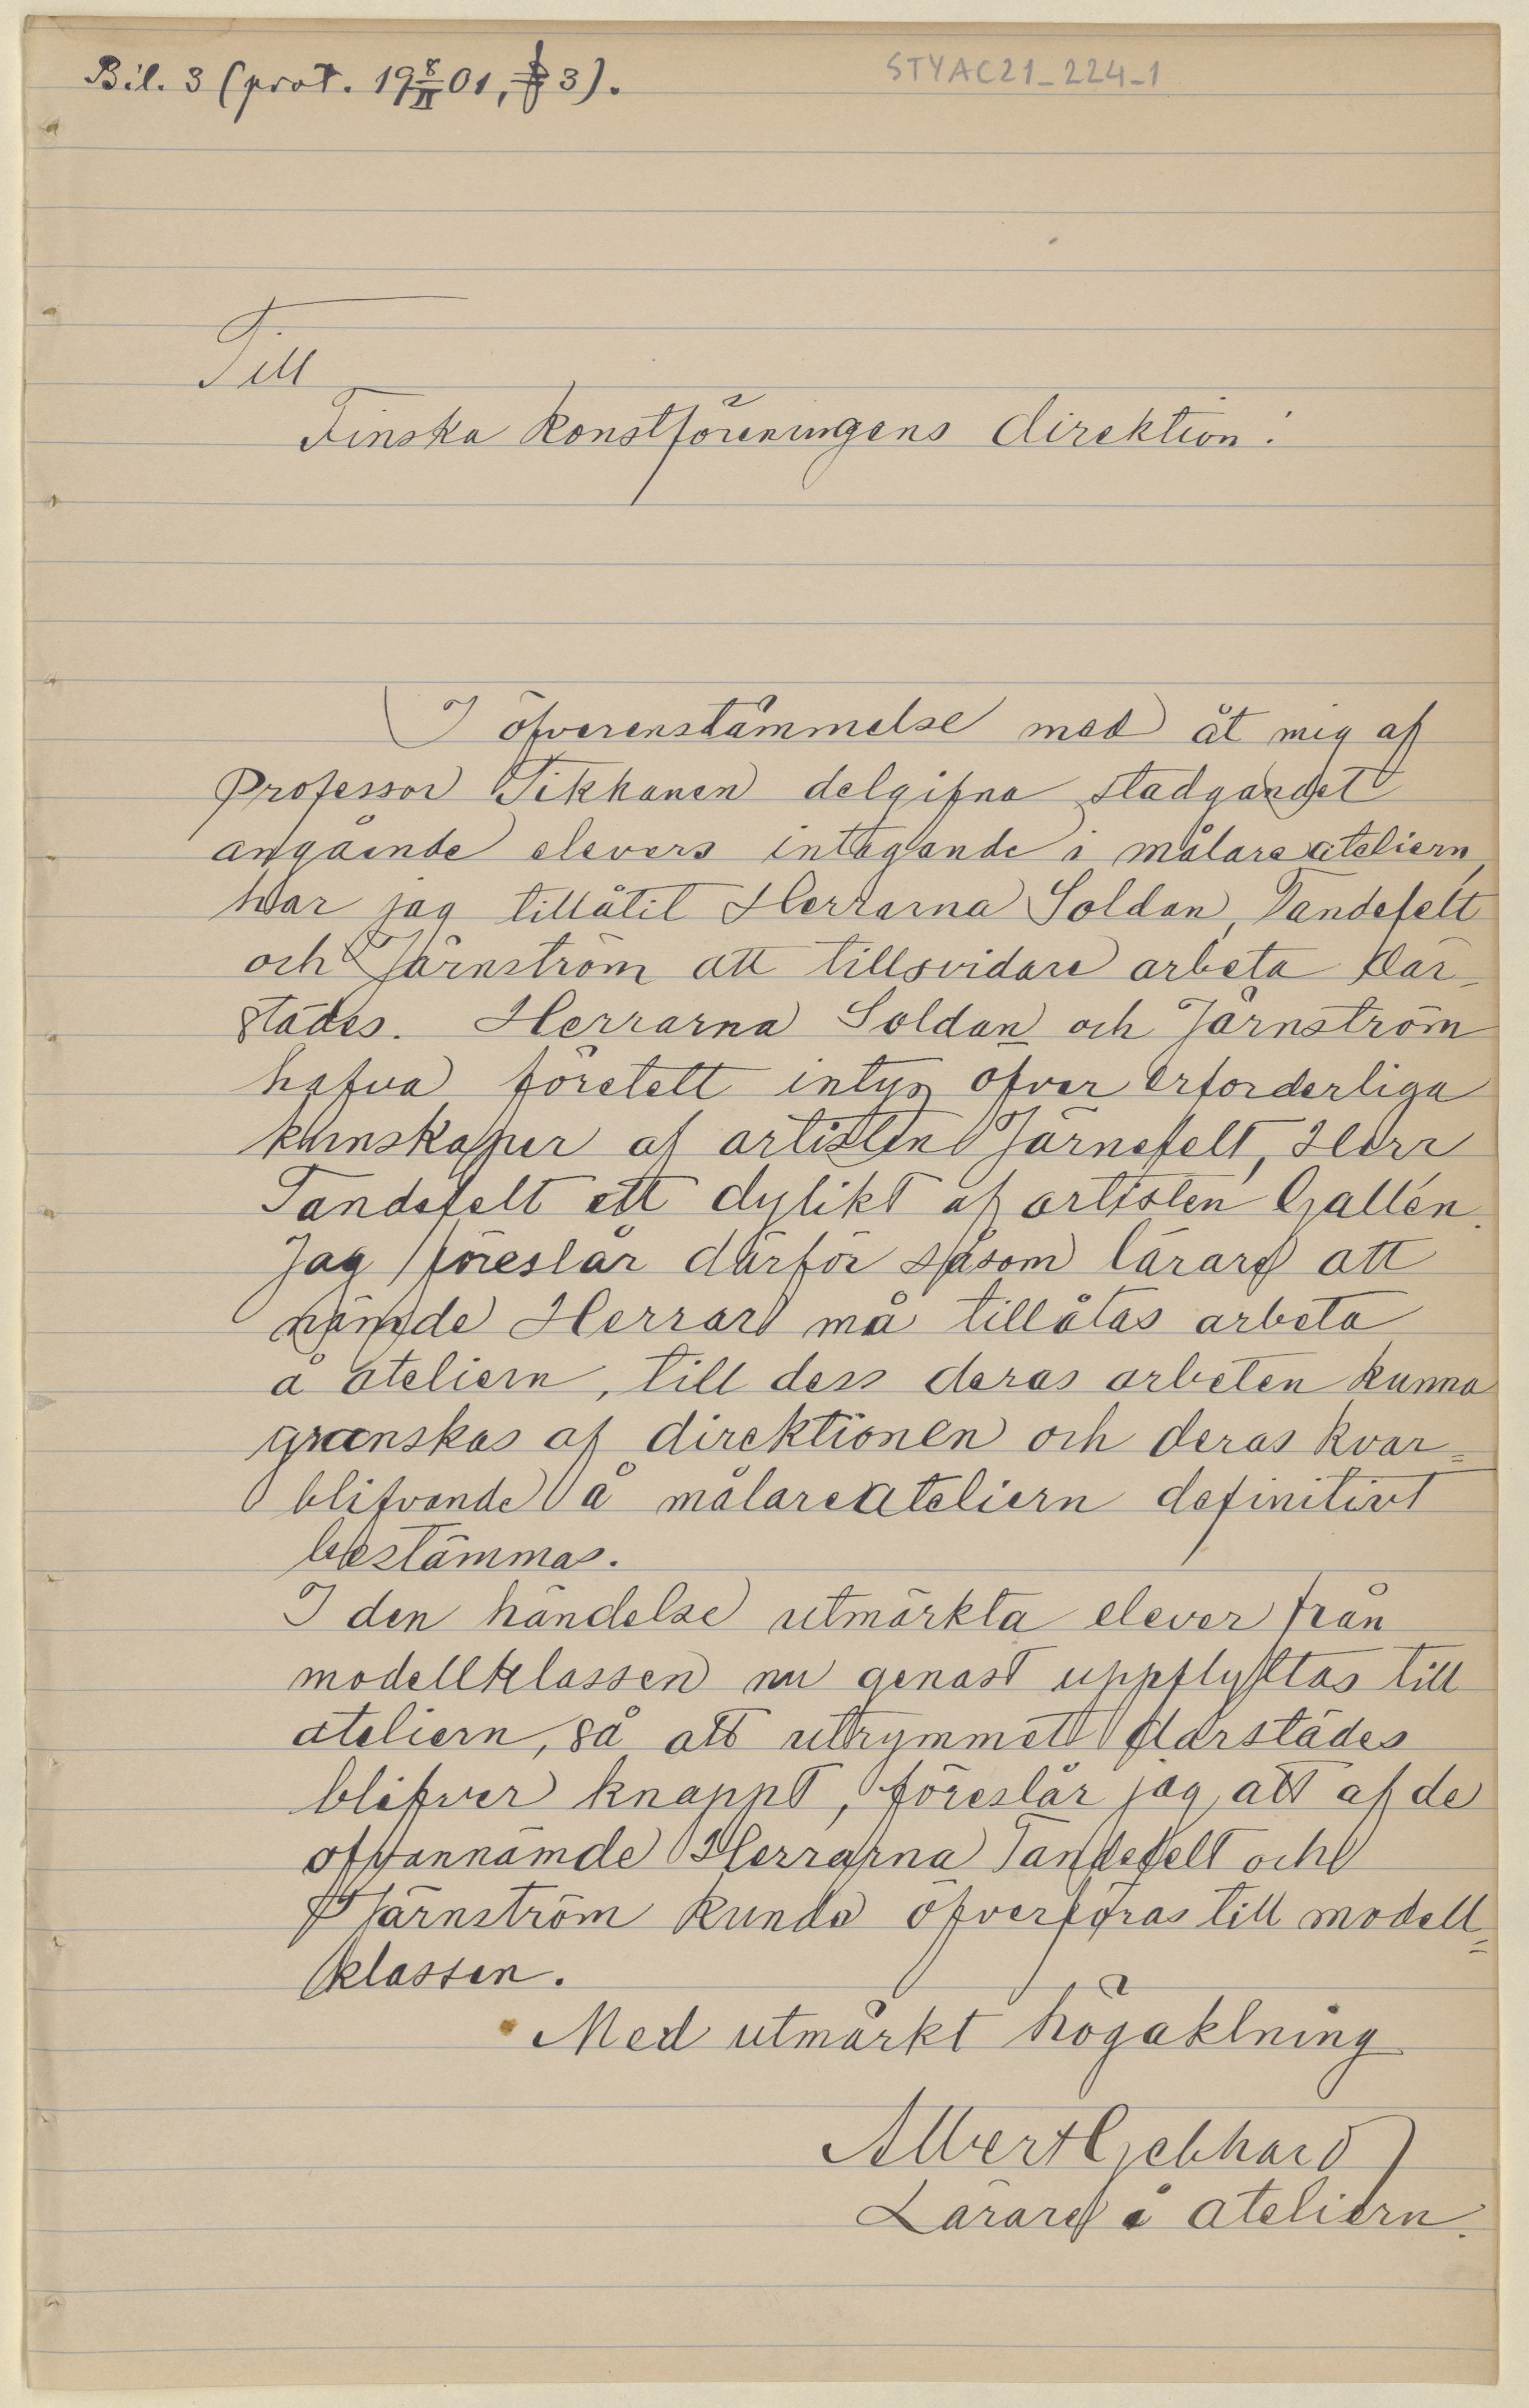 Bil. 3 (prot. 19 8/II 01, § 3).
STYAC21_224-1
Till
Finska konstföreningens direktion.
I öfverenstämmelse med åt mig af
Professor Tikkanen delgifna stadgandet
angående elevers intagande i målareateliern,
har jag tillåtit Herrarna Soldan, Tandefelt
och Järnström att tillsvidare arbeta där-
städes. Herrarna Soldan och Järnström
hafva företett intyg öfver erforderliga
kunskaper af artisten Järnefelt, Herr
Tandefelt ett dylikt af artisten Gallén.
Jag föreslår därför såsom lärare att
nämde Herrar må tillåtas arbeta
å ateliern, till dess deras arbeten kunna
granskas af direktionen och deras kvar=
blifvande å målareateliern definitivt
bestämmas.
I den händelse utmärkta elever från
modellklassen nu genast uppflyttas till
ateliern, så att utrymmet därstädes
blifver knappt, föreslår jag att af de
ofvannämde Herrarna Tandefelt och
Järnström kunde öfverföras till modell=
klassen.
Med utmärkt högaktning
Albert Gebhard
Lärare å ateliern.